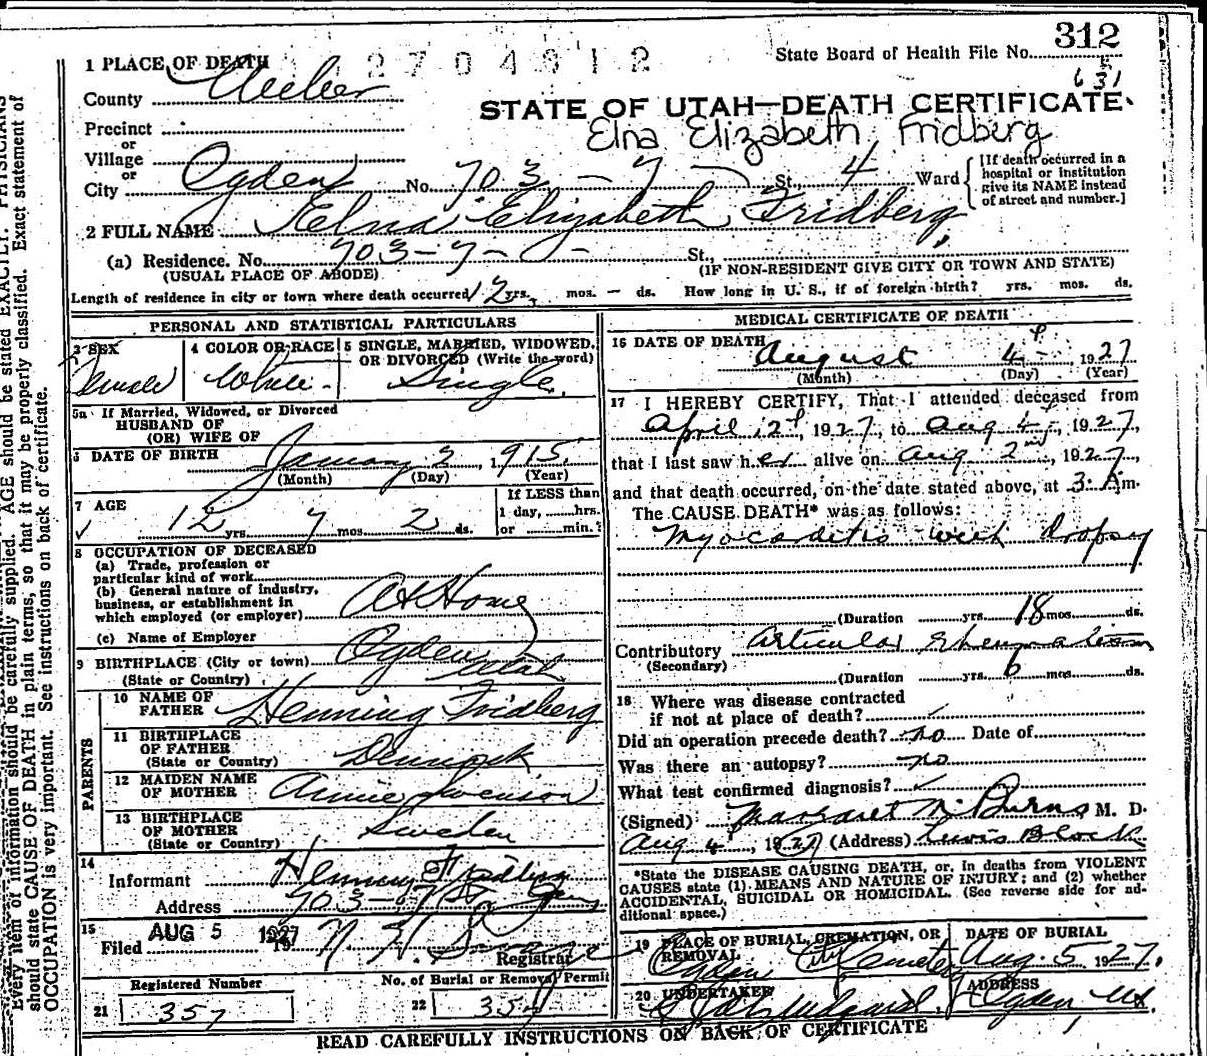 312
State Board of Health File No.
631
2704912
1 PLACE OF DEATH
County Weber
STATE OF UTAH—DEATH CERTIFICATE
Elna Elizabeth Fridberg
Precinct
or
Village
or
City Ogden No. 703-7- St. 4 Ward
[If death occurred in a
hospital or institution
give its NAME instead
of street and number.]
2 FULL NAME Elna Elizabeth Fridberg
(a) Residence. No. 703-7- St.,
(USUAL PLACE OF ABODE) (IF NON-RESIDENT GIVE CITY OR TOWN AND STATE)
Length of residence in city or town where death occurred 12 yrs. mos. - ds. How long in U. S., if of foreign birth? yrs. mos. ds.
PERSONAL AND STATISTICAL PARTICULARS
3 SEX
Female
4 COLOR OR RACE
White
5 SINGLE, MARRIED, WIDOWED,
OR DIVORCED (Write the word)
Single
5a If Married, Widowed, or Divorced
HUSBAND OF
(OR) WIFE OF
6 DATE OF BIRTH January 2, 1915
(Month) (Day) (Year)
7 AGE
12 yrs. 7 mos. 2 ds.
If LESS than
1 day, hrs.
or min.?
8 OCCUPATION OF DECEASED
(a) Trade, profession or
particular kind of work
(b) General nature of industry,
business, or establishment in
which employed (or employer) At Home
(c) Name of Employer
9 BIRTHPLACE (City or town) Ogden
(State or Country) Utah
PARENTS
10 NAME OF
FATHER Henning Fridberg
11 BIRTHPLACE
OF FATHER
(State or Country) Denmark
12 MAIDEN NAME
OF MOTHER Annie Swenson
13 BIRTHPLACE
OF MOTHER
(State or Country) Sweden
14
Informant Henning Fridberg
Address 703-7
15
Filed AUG 5 1927
Registrar
Registered Number
21 357
No. of Burial or Removal Permit
22 354
MEDICAL CERTIFICATE OF DEATH
16 DATE OF DEATH
August 4 1927
(Month) (Day) (Year)
17 I HEREBY CERTIFY, That I attended deceased from
April 12, 1927, to Aug 4, 1927,
that I last saw her alive on Aug 2nd, 1927,
and that death occurred, on the date stated above, at 3 Am.
The CAUSE DEATH* was as follows:
Myocarditis with Dropsy
(Duration yrs. 18 mos. ds.
Contributory Articular Rheumatism
(Secondary)
(Duration yrs. 6 mos. ds.
18 Where was disease contracted
if not at place of death? ✓
Did an operation precede death? no Date of
Was there an autopsy? no
What test confirmed diagnosis? ✓
(Signed) Margaret McBurns M. D.
Aug 4, 1927 (Address) Lewis Block
*State the DISEASE CAUSING DEATH, or, in deaths from VIOLENT
CAUSES state (1) MEANS AND NATURE OF INJURY; and (2) whether
ACCIDENTAL, SUICIDAL OR HOMICIDAL. (See reverse side for ad-
ditional space.)
19 PLACE OF BURIAL, CREMATION, OR
REMOVAL
Ogden City Cemetery
DATE OF BURIAL
Aug. 5 1927.
20 UNDERTAKER
ADDRESS
Ogden, Ut.
READ CAREFULLY INSTRUCTIONS ON BACK OF CERTIFICATE
Every item of information should be carefully supplied. AGE should be stated EXACTLY. PHYSICIANS
should state CAUSE OF DEATH in plain terms, so that it may be properly classified. Exact statement of
OCCUPATION is very important. See instructions on back of certificate.